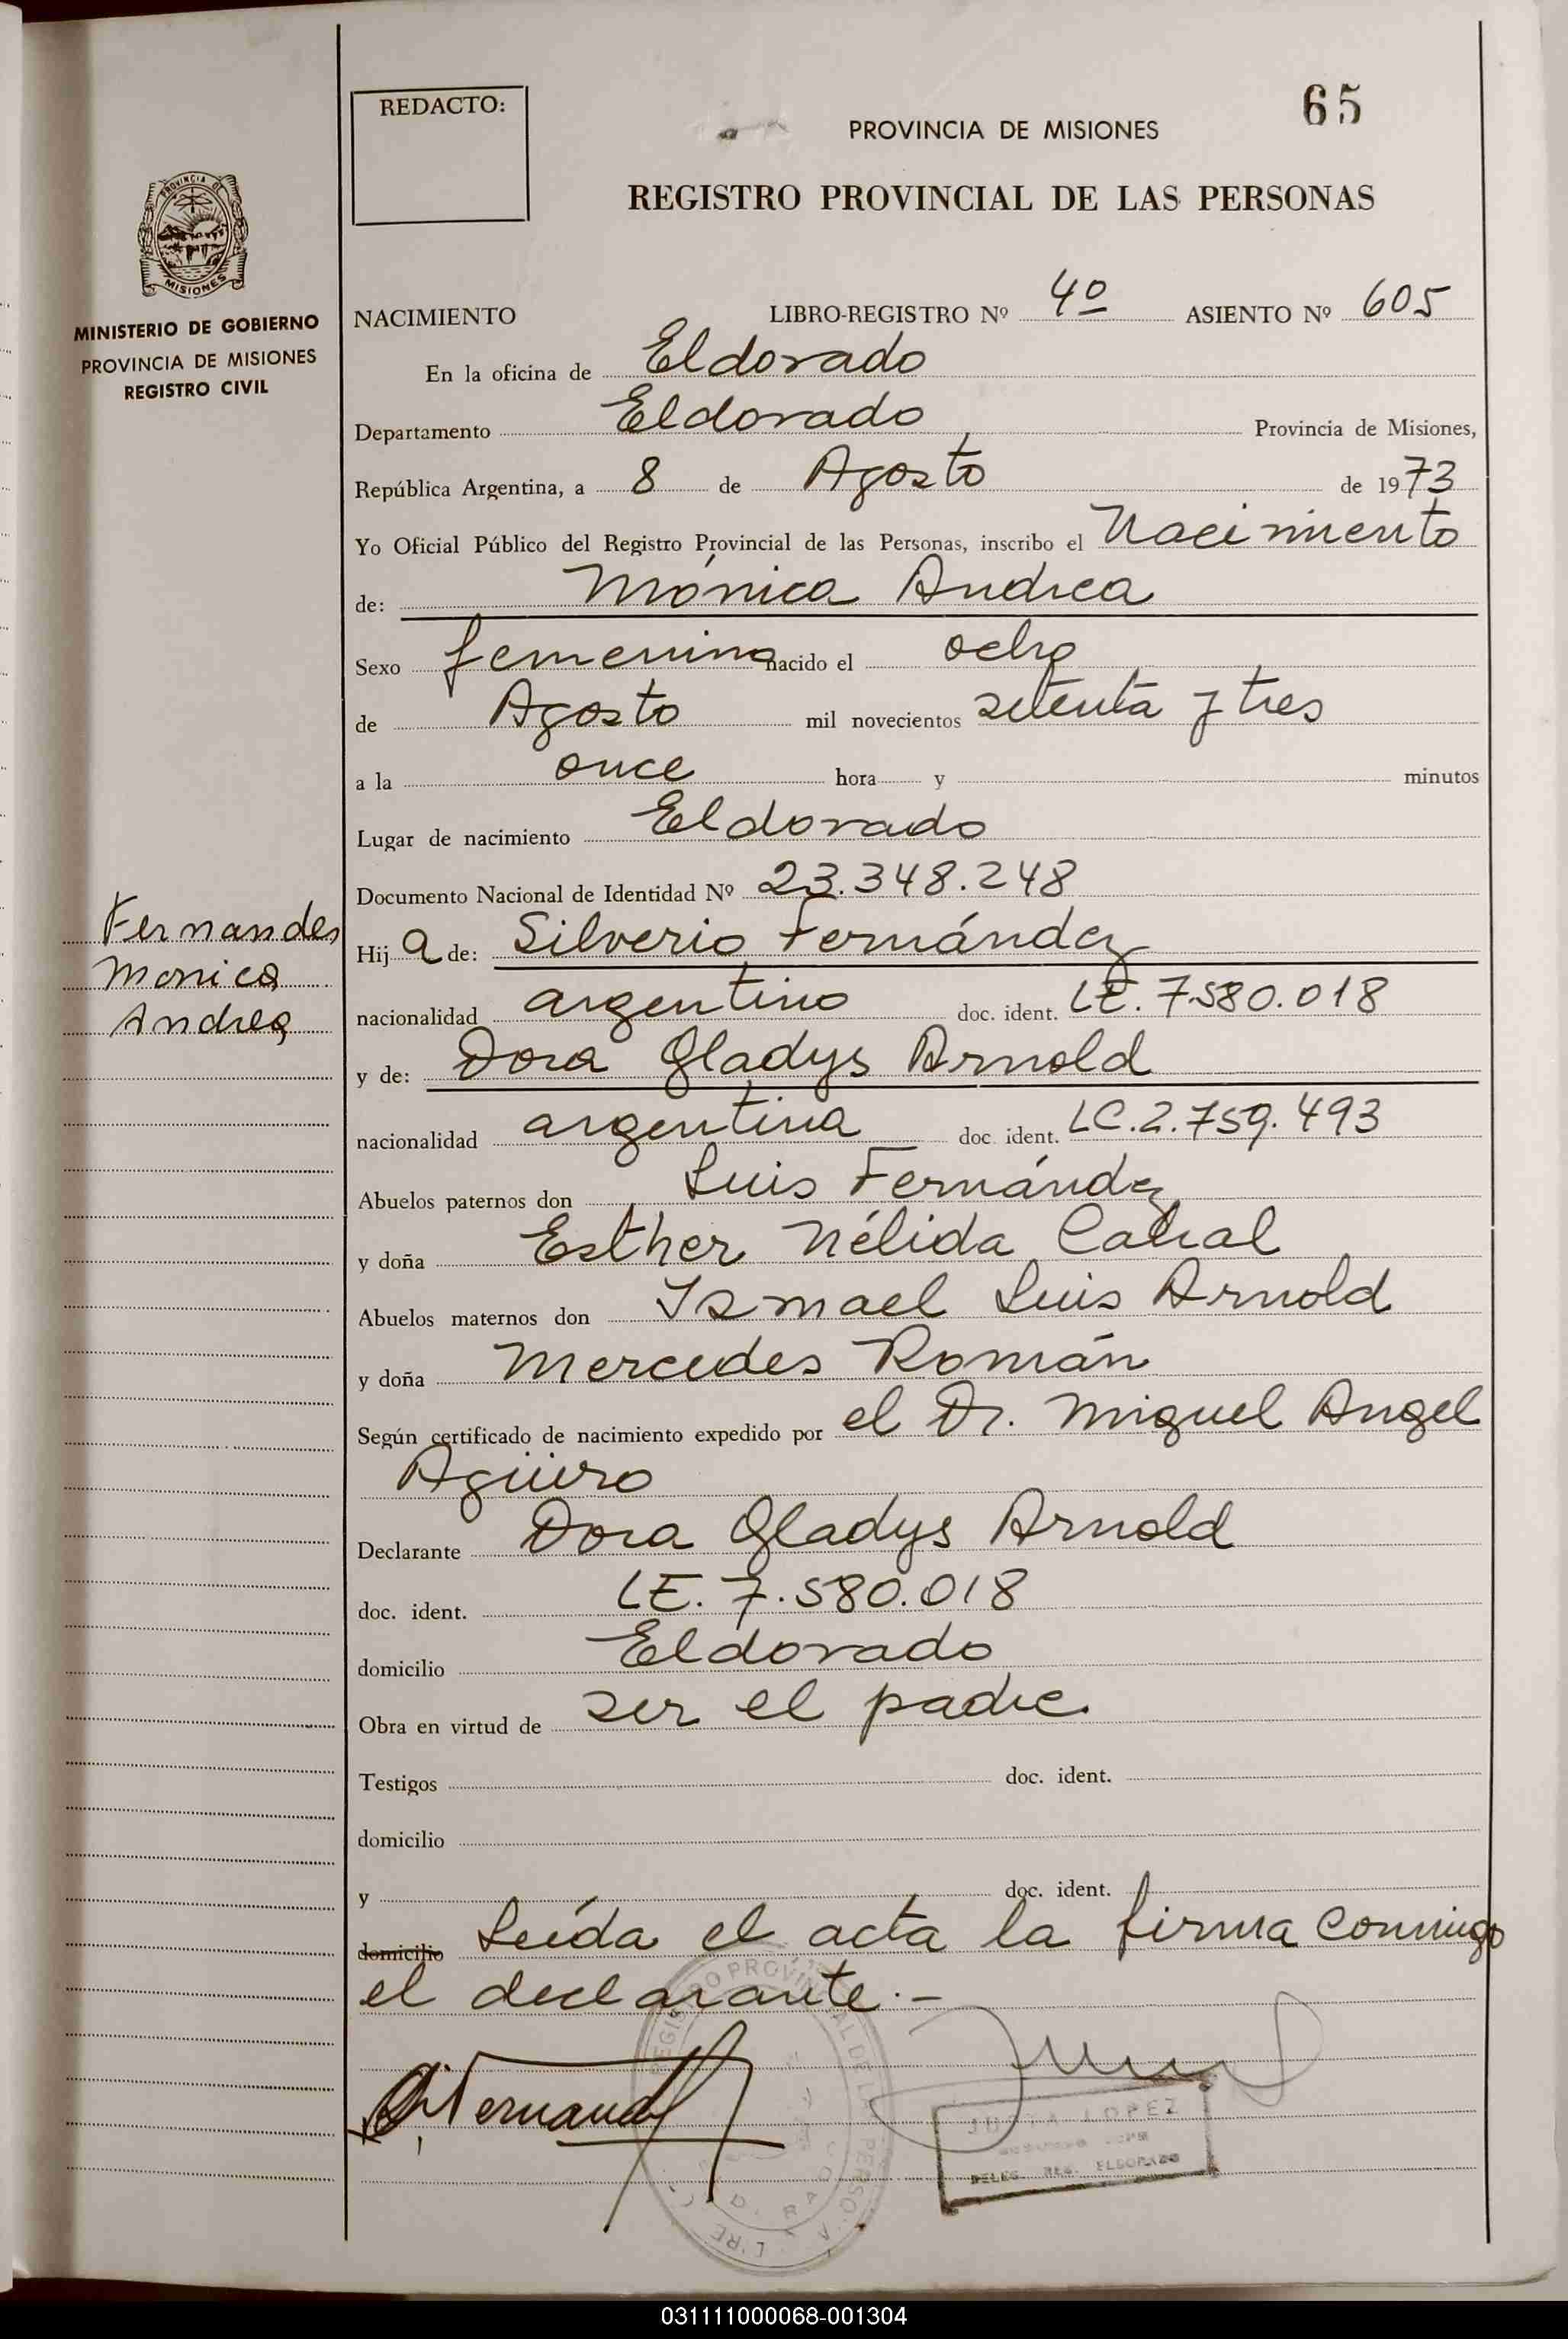 65
REDACTO:
PROVINCIA DE MISIONES
REGISTRO PROVINCIAL DE LAS PERSONAS
PROVINCIA DE
MISIONES
MINISTERIO DE GOBIERNO
PROVINCIA DE MISIONES
REGISTRO CIVIL
NACIMIENTO LIBRO-REGISTRO Nº 4º ASIENTO Nº 605
En la oficina de Eldorado
Departamento Eldorado, Provincia de Misiones,
República Argentina, a 8 de Agosto de 1973
Yo Oficial Público del Registro Provincial de las Personas, inscribo el Nacimiento
de: Mónica Andrea
Sexo femenino nacido el ocho
de Agosto mil novecientos setenta y tres
a la once hora y minutos
Lugar de nacimiento Eldorado
Documento Nacional de Identidad Nº 23.348.248
Fernandes
Monica
Andrea
Hija de: Silverio Fernández
nacionalidad argentino doc. ident. LE. 7.580.018
y de: Dora Gladys Arnold
nacionalidad argentina doc. ident. LC. 2.759.493
Abuelos paternos don Luis Fernández
y doña Esther Nélida Cabral
Abuelos maternos don Ismael Luis Arnold
y doña Mercedes Román
Según certificado de nacimiento expedido por el Dr. Miguel Angel
Agüero
Declarante Dora Gladys Arnold
doc. ident. LE. 7.580.018
domicilio Eldorado
Obra en virtud de ser el padre.
Testigos doc. ident.
domicilio
y doc. ident.
domicilio Leída el acta la firma conmigo
el declarante.-
REGISTRO PROVINCIAL DE LAS PERSONAS
LOPEZ
DELEG. REG. ELDORADO
031111000068-001304